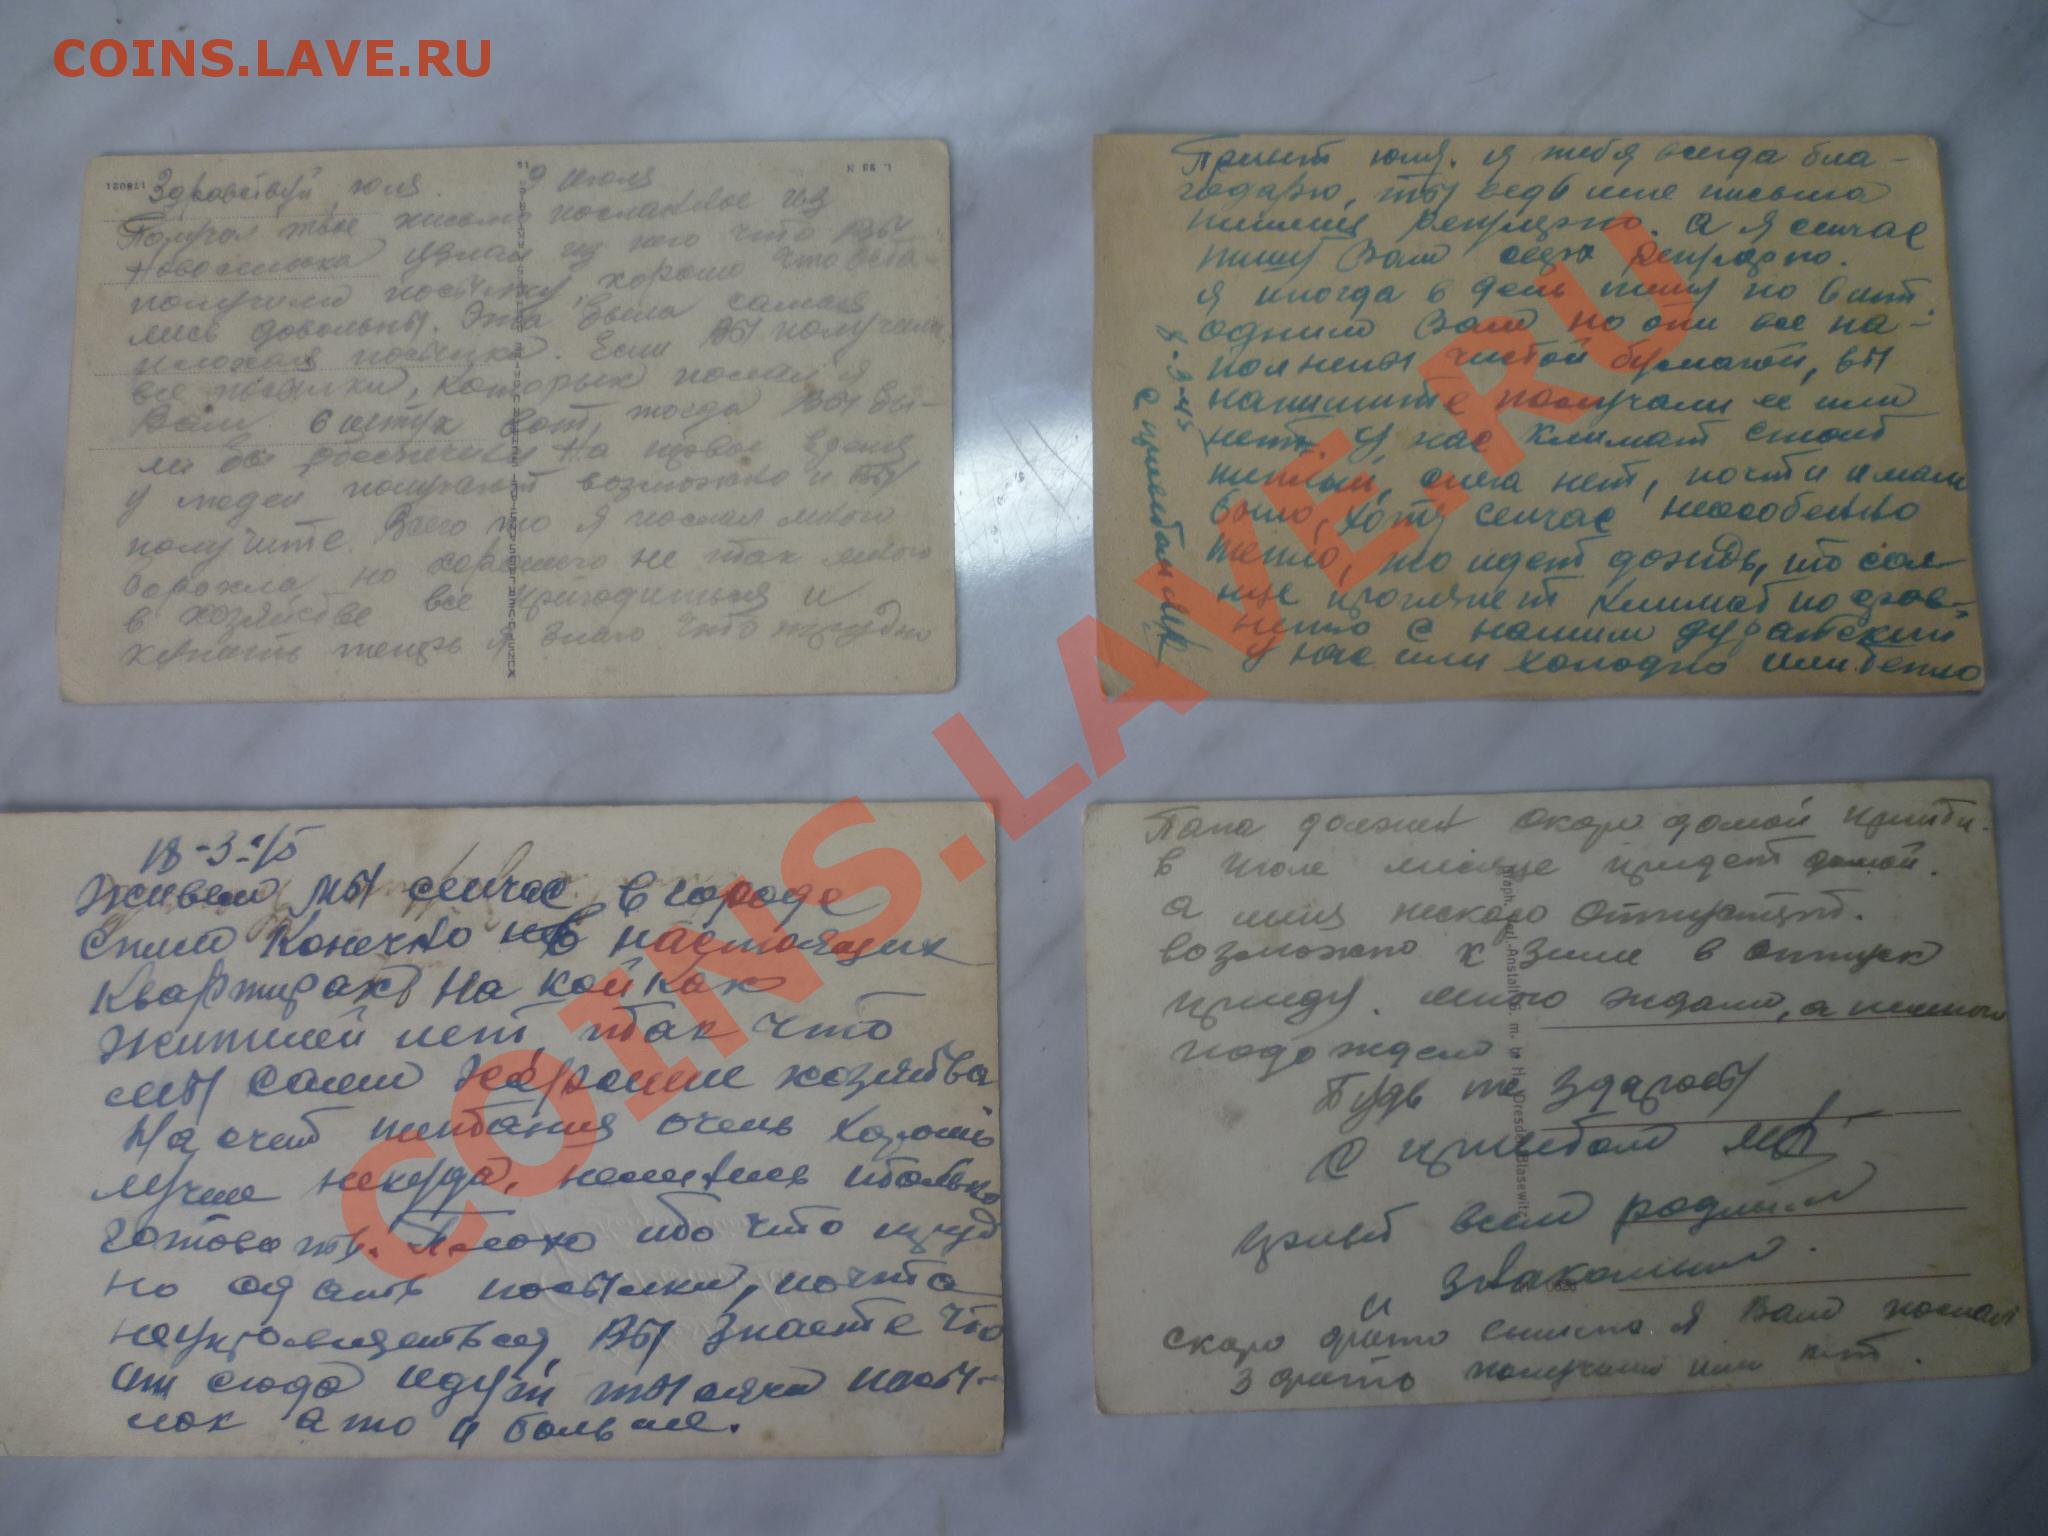 COINS.LAVE.RU
178021
Здровствуй, юля. 9 июля
Получил твое письмо посланное из
Новоселыска узнал из него что ВЫ
получили посылку, хорошо что оста-
лись довольны. Эта была самая
плохая посылка. Если ВЫ получили
все посылки, Которых послал я
Вам 6 штук вот, тогда ВЫ бы-
ли бы обеспечены На первое время
у людей получают возможно и ВЫ
получите. Всего то я послал много
борохла, но хорошего не так много
в хозяйстве все пригодиться и
теперь я знаю что трудно
Привет юля. я тебя всегда бла-
годарю, ты ведь мне письма
пишиш регулярно. а я сейчас
пишу Вам регулярно.
я иногда в день пишу по 6 шт
одним Вам но они все на-
полнены чистой бумагой, вы
напишите получали ее или
нет. У нас Климат стоит
теплый, снега нет, почти и мало
было, хотя сейчас неособенно
тепло, то идет дождь, то сол-
нце проглянет Климат по
с нашим
у нас или холодно или тепло
8-3-45
с приветом
18-3-45
Живем мы сейчас в городе
Спим Конечно не в настоящих
Квартирах На койках
жителей нет, так что
мы сами Хорошие хозяйва
На счет питания очень Хорошо
лучше некуда, ленишь только
готовать. Плохо ибо что труд
но сдать посылки, почта
неуправляеться, ВЫ знаете что
от сюда идут тысячи посы-
лок а то и больше.
Папа должен скоро домой притти.
в июле месяце придет домой.
а меня нескоро отпустят.
возможно к зиме в отпуск
приду. много ждали, а немного
подождем
Будь те здоровы
С приветом
привет всем родным
и знакомым.
скоро фото снимся я Вам послал
3 фото получили или нет.